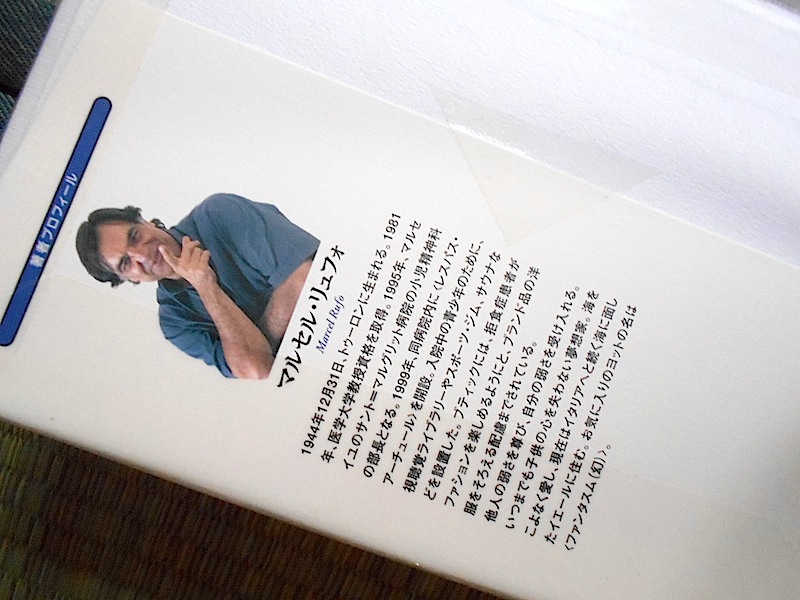 著者プロフィール
マルセル・リュフォ
Marcel Rufo
1944年12月31日、トゥーロンに生まれる。1981
年、医学大学教授資格を取得。1995年、マルセ
イユのサント=マルグリット病院の小児精神科
の部長となる。1999年、同病院内に〈レスパス・
アーチュール〉を開設。入院中の青少年のために、
視聴覚ライブラリーやスポーツ・ジム、サウナな
どを設置した。ブティックには、拒食症患者が
ファッションを楽しめるようにと、ブランド品の洋
服をそろえる配慮までされている。
他人の弱さを尊び、自分の弱さを受け入れる。
いつまでも子供の心を失わない夢想家。海を
こよなく愛し、現在はイタリアへと続く海に面し
たイエールに住む。お気に入りのヨットの名は
〈ファンタスム(幻)〉。